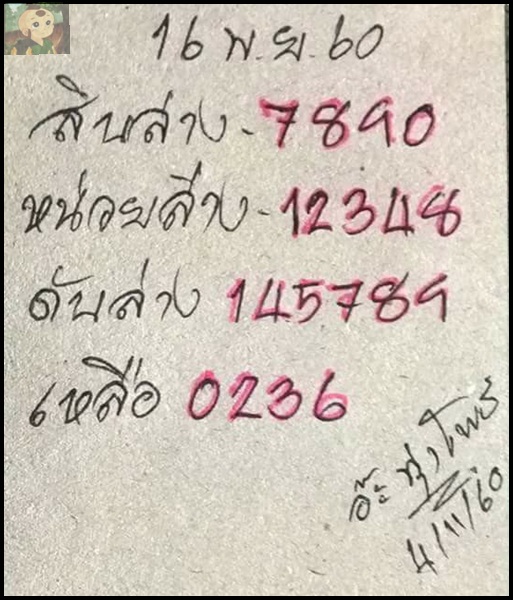 16 พ.ย. 60
สิบล่าง - 7890
หน่วยล่าง - 12348
ดับล่าง 145789
เหลือ 0236
4/11/60